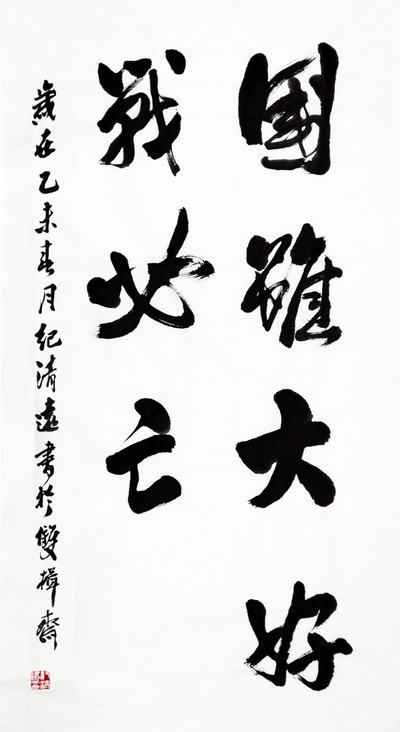 國雖大好
戰必亡
歲在乙未春月紀清遠書於雙楫齋